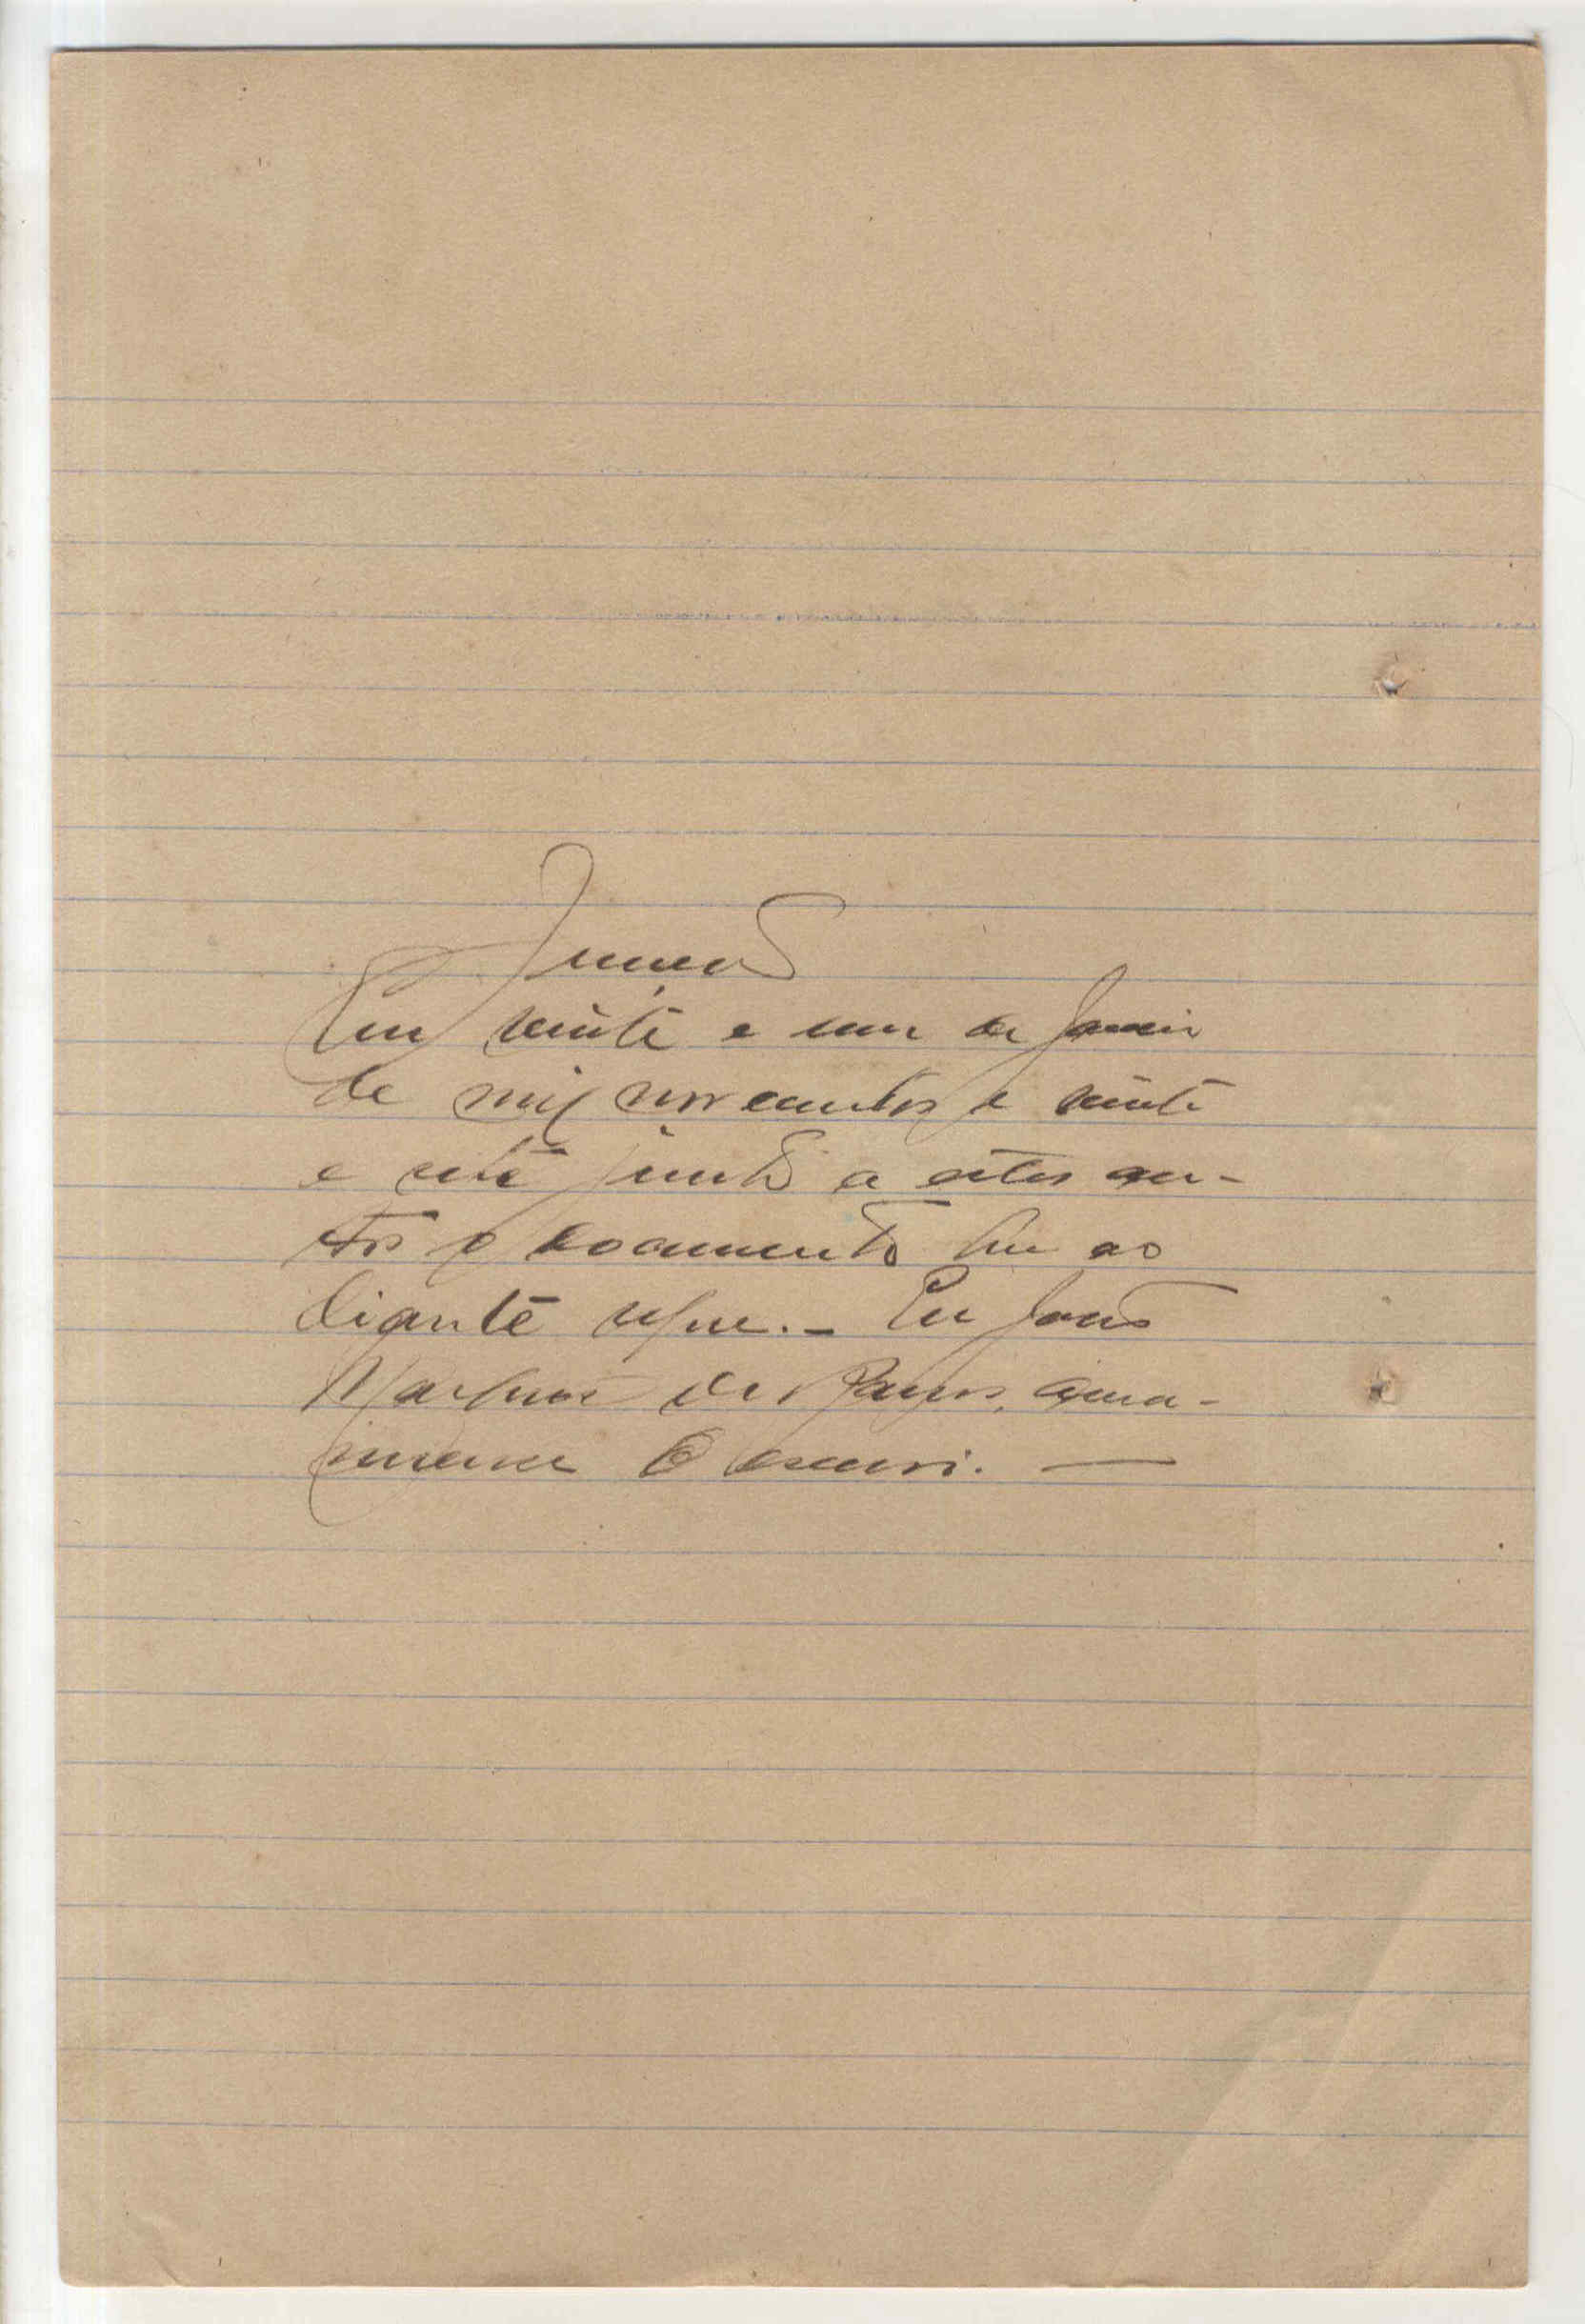 Juntada
Em vinte e um de Janeiro
de mil novecentos e vinte
e sete junto a estes au-
tos o documento que ao
diante segue. - Eu João
de
o escrevi. -